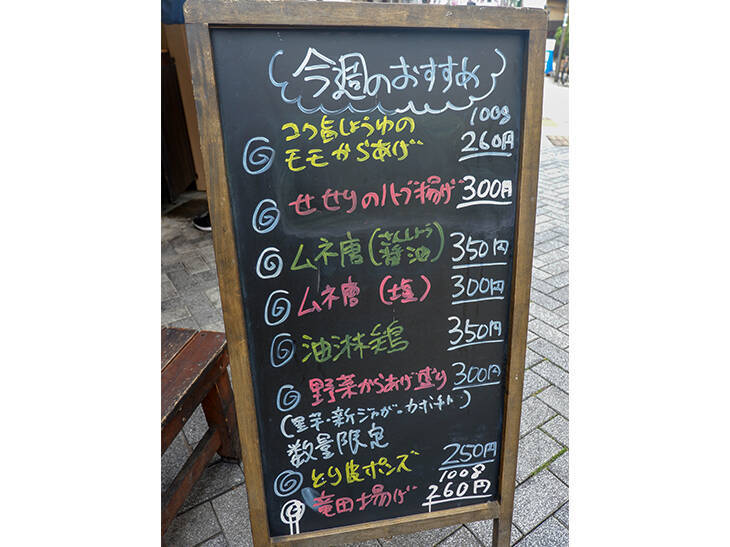 今週のおすすめ
コク旨しょうゆの 100g
モモからあげ 260円
せせりのハーブ揚げ 300円
ムネ唐(さんしょう醤油) 350円
ムネ唐(塩) 300円
油淋鶏 350円
野菜からあげ盛り 300円
(里芋・新ジャガ・カボチャ)
数量限定
とり皮ポンズ 250円
100g
竜田揚げ 260円